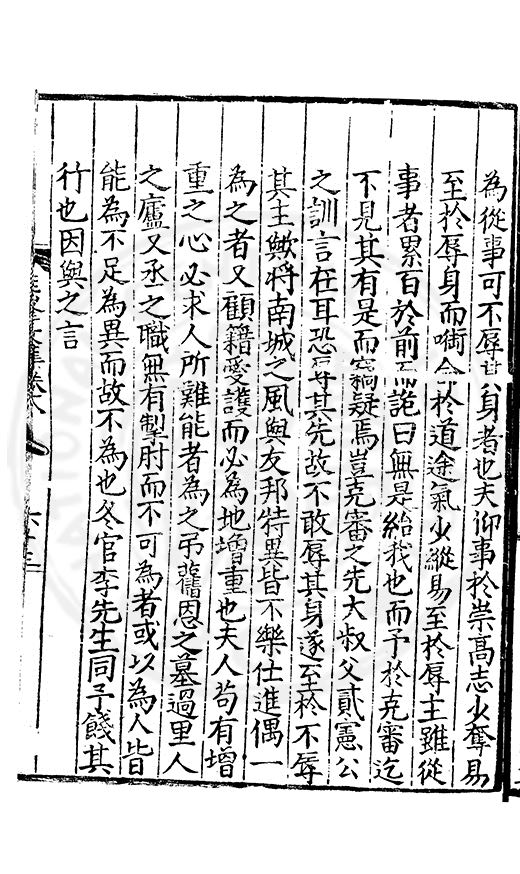 為從事可不辱其身者也夫仰事於崇高志少奪易
至於辱身而啣命於道途氣少縱易至於辱主雖從
事者累百於前而詭曰無是紿我也而予於克審迄
不見其有是而竊疑焉豈克審之先大叔父貳憲公
之訓言在耳恐辱其先故不敢辱其身遂至於不辱
其主歟將南城之風與友邦特異皆不樂仕進偶一
為之者又顧籍愛護而必為地增重也夫人苟有增
重之心必求人所難能者為之弔舊恩之墓過里人
之廬又丞之職無有掣肘而不可為者或以為人皆
能為不足為異而故不為也冬官李先生同予餞其
行也因與之言